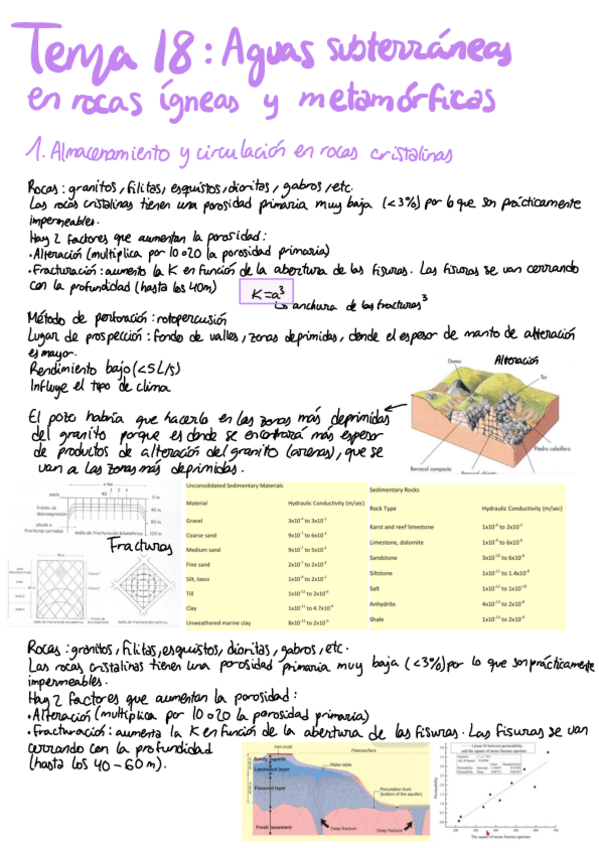 Tema 18: Aguas subterráneas
en rocas ígneas y metamórficas
1. Almacenamiento y circulación en rocas cristalinas
Rocas: granitos, filitas, esquistos, dioritas, gabros, etc.
Las rocas cristalinas tienen una porosidad primaria muy baja (<3%) por lo que son prácticamente
impermeables.
Hay 2 factores que aumentan la porosidad:
•Alteración (multiplica por 10 o 20 la porosidad primaria)
•Fracturación: aumenta la K en función de la abertura de las fisuras. Las fisuras se van cerrando
con la profundidad (hasta los 40m)
K=a³
↳ anchura de las fracturas³
Método de perforación: rotopercusión
Lugar de prospección: fondo de valles, zonas deprimidas, donde el espesor de manto de alteración
es mayor.
Rendimiento bajo (<5 L/s)
Influye el tipo de clima
Domo
Alteración
Tor
Piedra caballera
Berrocal compacto
El pozo habría que hacerlo en las zonas más deprimidas
del granito porque es donde se encontrará más espesor
de productos de alteración del granito (arenas), que se
van a las zonas más deprimidas.
Fracturas
Unconsolidated Sedimentary Materials
Material Hydraulic Conductivity (m/sec)
Gravel 3x10⁻⁴ to 3x10⁻²
Coarse sand 9x10⁻⁷ to 6x10⁻³
Medium sand 9x10⁻⁷ to 5x10⁻⁴
Fine sand 2x10⁻⁷ to 2x10⁻⁴
Silt, loess 1x10⁻⁹ to 2x10⁻⁵
Till 1x10⁻¹² to 2x10⁻⁶
Clay 1x10⁻¹¹ to 4.7x10⁻⁹
Unweathered marine clay 8x10⁻¹³ to 2x10⁻⁹
Sedimentary Rocks
Rock Type Hydraulic Conductivity (m/sec)
Karst and reef limestone 1x10⁻⁶ to 2x10⁻²
Limestone, dolomite 1x10⁻⁹ to 6x10⁻⁶
Sandstone 3x10⁻¹⁰ to 6x10⁻⁶
Siltstone 1x10⁻¹¹ to 1.4x10⁻⁸
Salt 1x10⁻¹² to 1x10⁻¹⁰
Anhydrite 4x10⁻¹³ to 2x10⁻⁸
Shale 1x10⁻¹³ to 2x10⁻⁹
Rocas: granitos, filitas, esquistos, dioritas, gabros, etc.
Las rocas cristalinas tienen una porosidad primaria muy baja (<3%) por lo que son prácticamente
impermeables.
Hay 2 factores que aumentan la porosidad:
•Alteración (multiplica por 10 o 20 la porosidad primaria)
•Fracturación: aumenta la K en función de la abertura de las fisuras. Las fisuras se van
cerrando con la profundidad
(hasta los 40-60 m).
Iron crust
Paleosurface
Water table
Laminated layer
Fissured layer
Percolation front
(bottom of the aquifer)
Fresh basement
Deep fracture
Deep fracture
Permeability
The square of mean fracture aperture